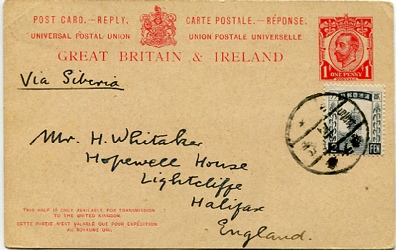 POST CARD.—REPLY. CARTE POSTALE.—RÉPONSE.
UNIVERSAL POSTAL UNION UNION POSTALE UNIVERSELLE
GREAT BRITAIN & IRELAND
1 ONE PENNY 1
Via Siberia
FEN
Mr. H. Whitaker
Hopewell House
Lightcliffe
Halifax
England.
THIS HALF IS ONLY AVAILABLE FOR TRANSMISSION
TO THE UNITED KINGDOM.
CETTE PARTIE N'EST VALABLE QUE POUR EXPÉDITION
AU ROYAUME UNI.